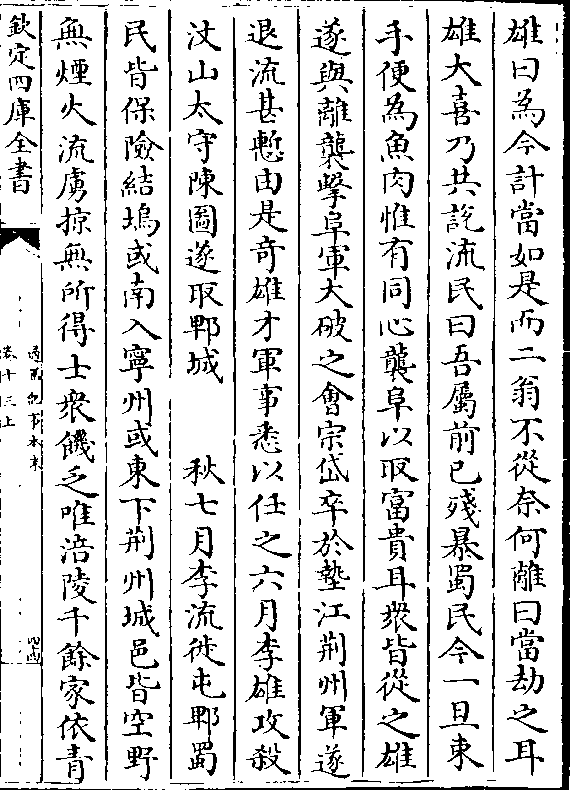 雄曰為今計當如是而二翁不從奈何離曰當劫之耳
雄大喜乃共說流民曰吾屬前已殘暴蜀民今一旦束
手便為魚肉惟有同心襲阜以取富貴耳衆皆從之雄
遂與離襲擊阜軍大破之會宗岱卒於墊江荆州軍遂
退流甚慙由是竒雄才軍事悉以任之六月李雄攻殺
汶山太守陳圖遂取郫城　秋七月李流徙屯郫蜀
民皆保險結塢或南入寧州或東下荆州城邑皆空野
無煙火流虜掠無所得士衆饑乏唯涪陵千餘家依青
欽定四庫全書
通鑑紀事本末
卷十三上
四十四